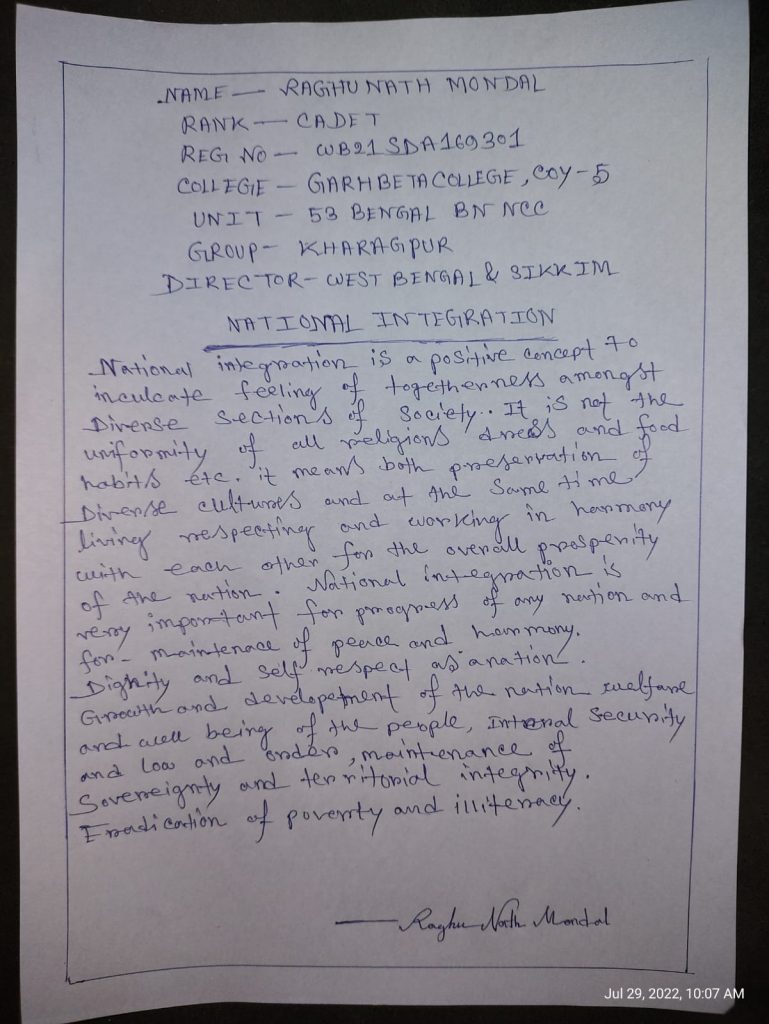 NAME — RAGHUNATH MONDAL
RANK — CADET
REG NO — WB21SDA169301
COLLEGE — GARHBETA COLLEGE, COY-5
UNIT — 53 BENGAL BN NCC
GROUP — KHARAGPUR
DIRECTOR- WEST BENGAL & SIKKIM
NATIONAL INTEGRATION
National integration is a positive concept to
inculcate feeling of togetherness amongst
Diverse sections of society.. It is not the
uniformity of all religions dress and food
habits etc. it means both preservation of
Diverse cultures and at the same time
living respecting and working in harmony
with each other for the overall prosperity
of the nation. National integration is
very important for progress of any nation and
for- maintenace of peace and harmony.
Dignity and self respect as a nation.
Growth and developetment of the nation welfare
and well being of the people, Internal security
and low and order, maintenance of
Sovereignty and territorial integrity.
Eradication of poverty and illiteracy.
— Raghu Nath Mondal
Jul 29, 2022, 10:07 AM